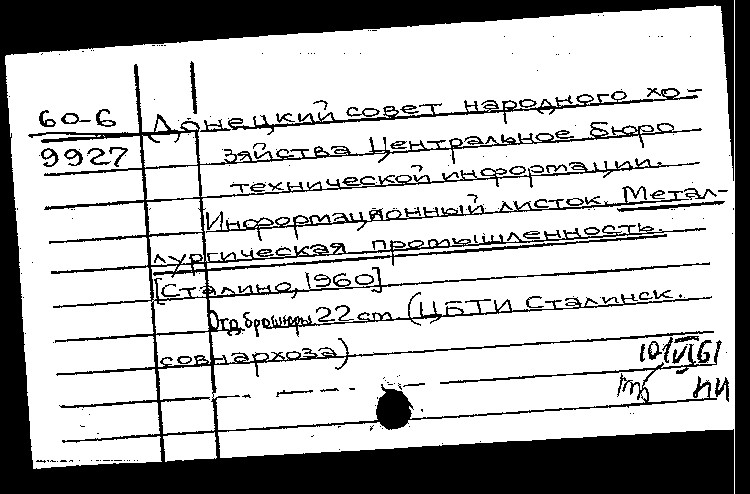 60-6 Донецкий совет народного хо-
9927 зяйства Центральное бюро
технической информации.
Информационный листок. Метал-
лургическая промышленность.
[Сталино, 1960]
Отд. брошюры 22 cm (ЦБТИ Сталинск.
совнархоза)
10/VI 61
пи